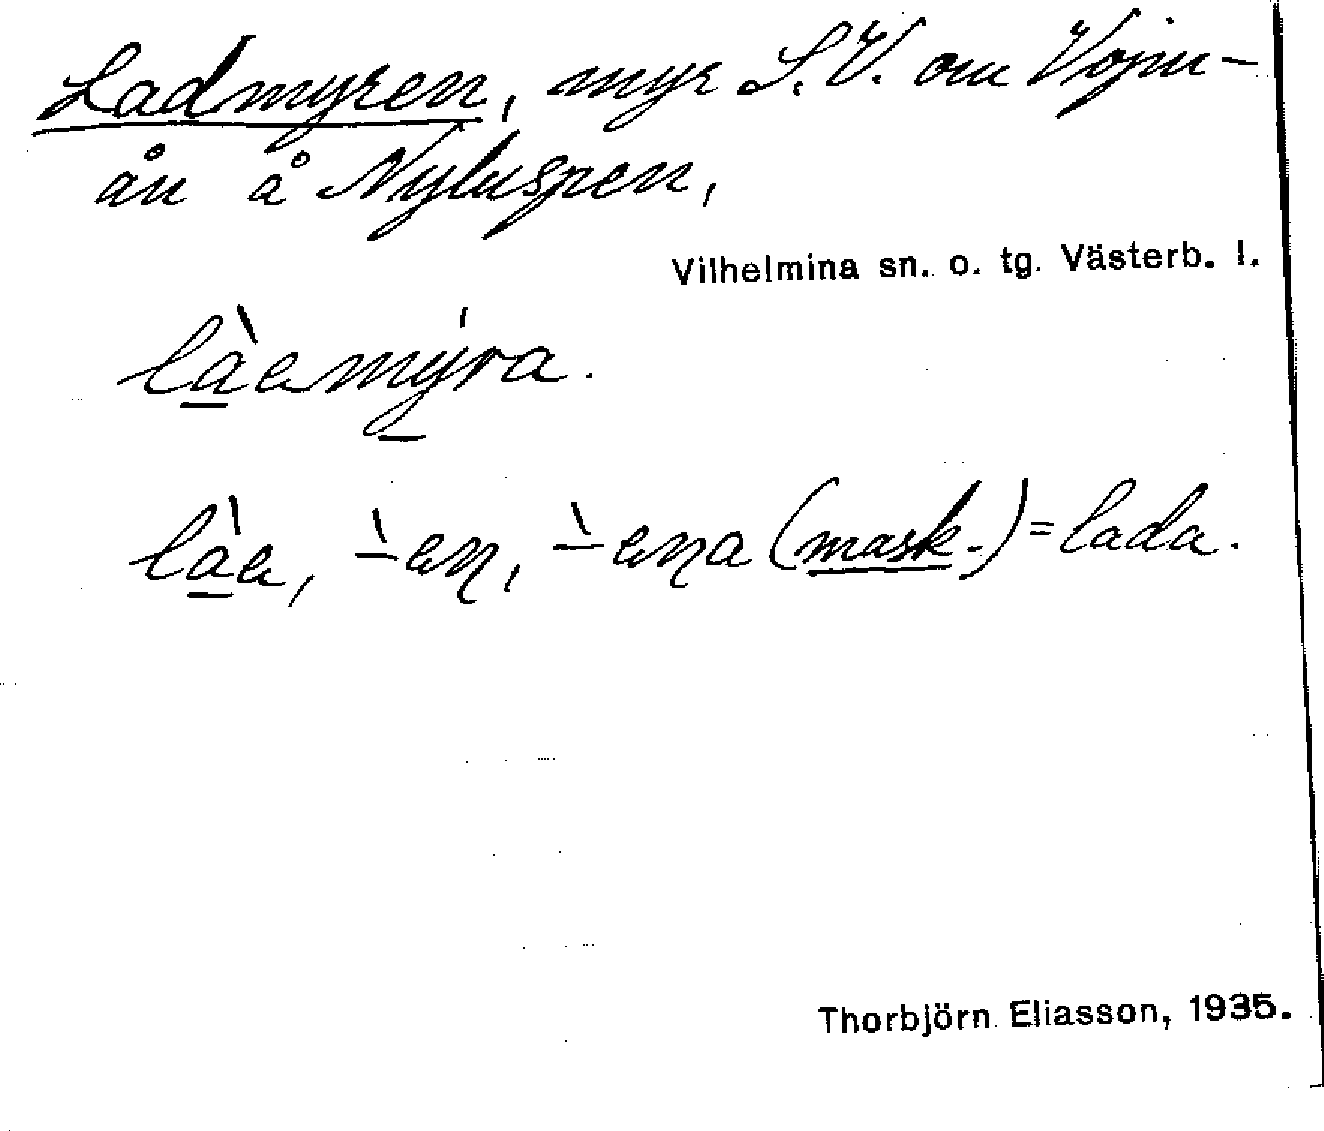 Ladmyren, myr S.V. om Vojm-
ån å Nyluspen,
Vilhelmina sn. o. tg. Västerb. l.
là̠amý̠ra.
là̠a, -̀aɳ, -̀aɳa (mask.) = lada.
Thorbjörn Eliasson, 1935.